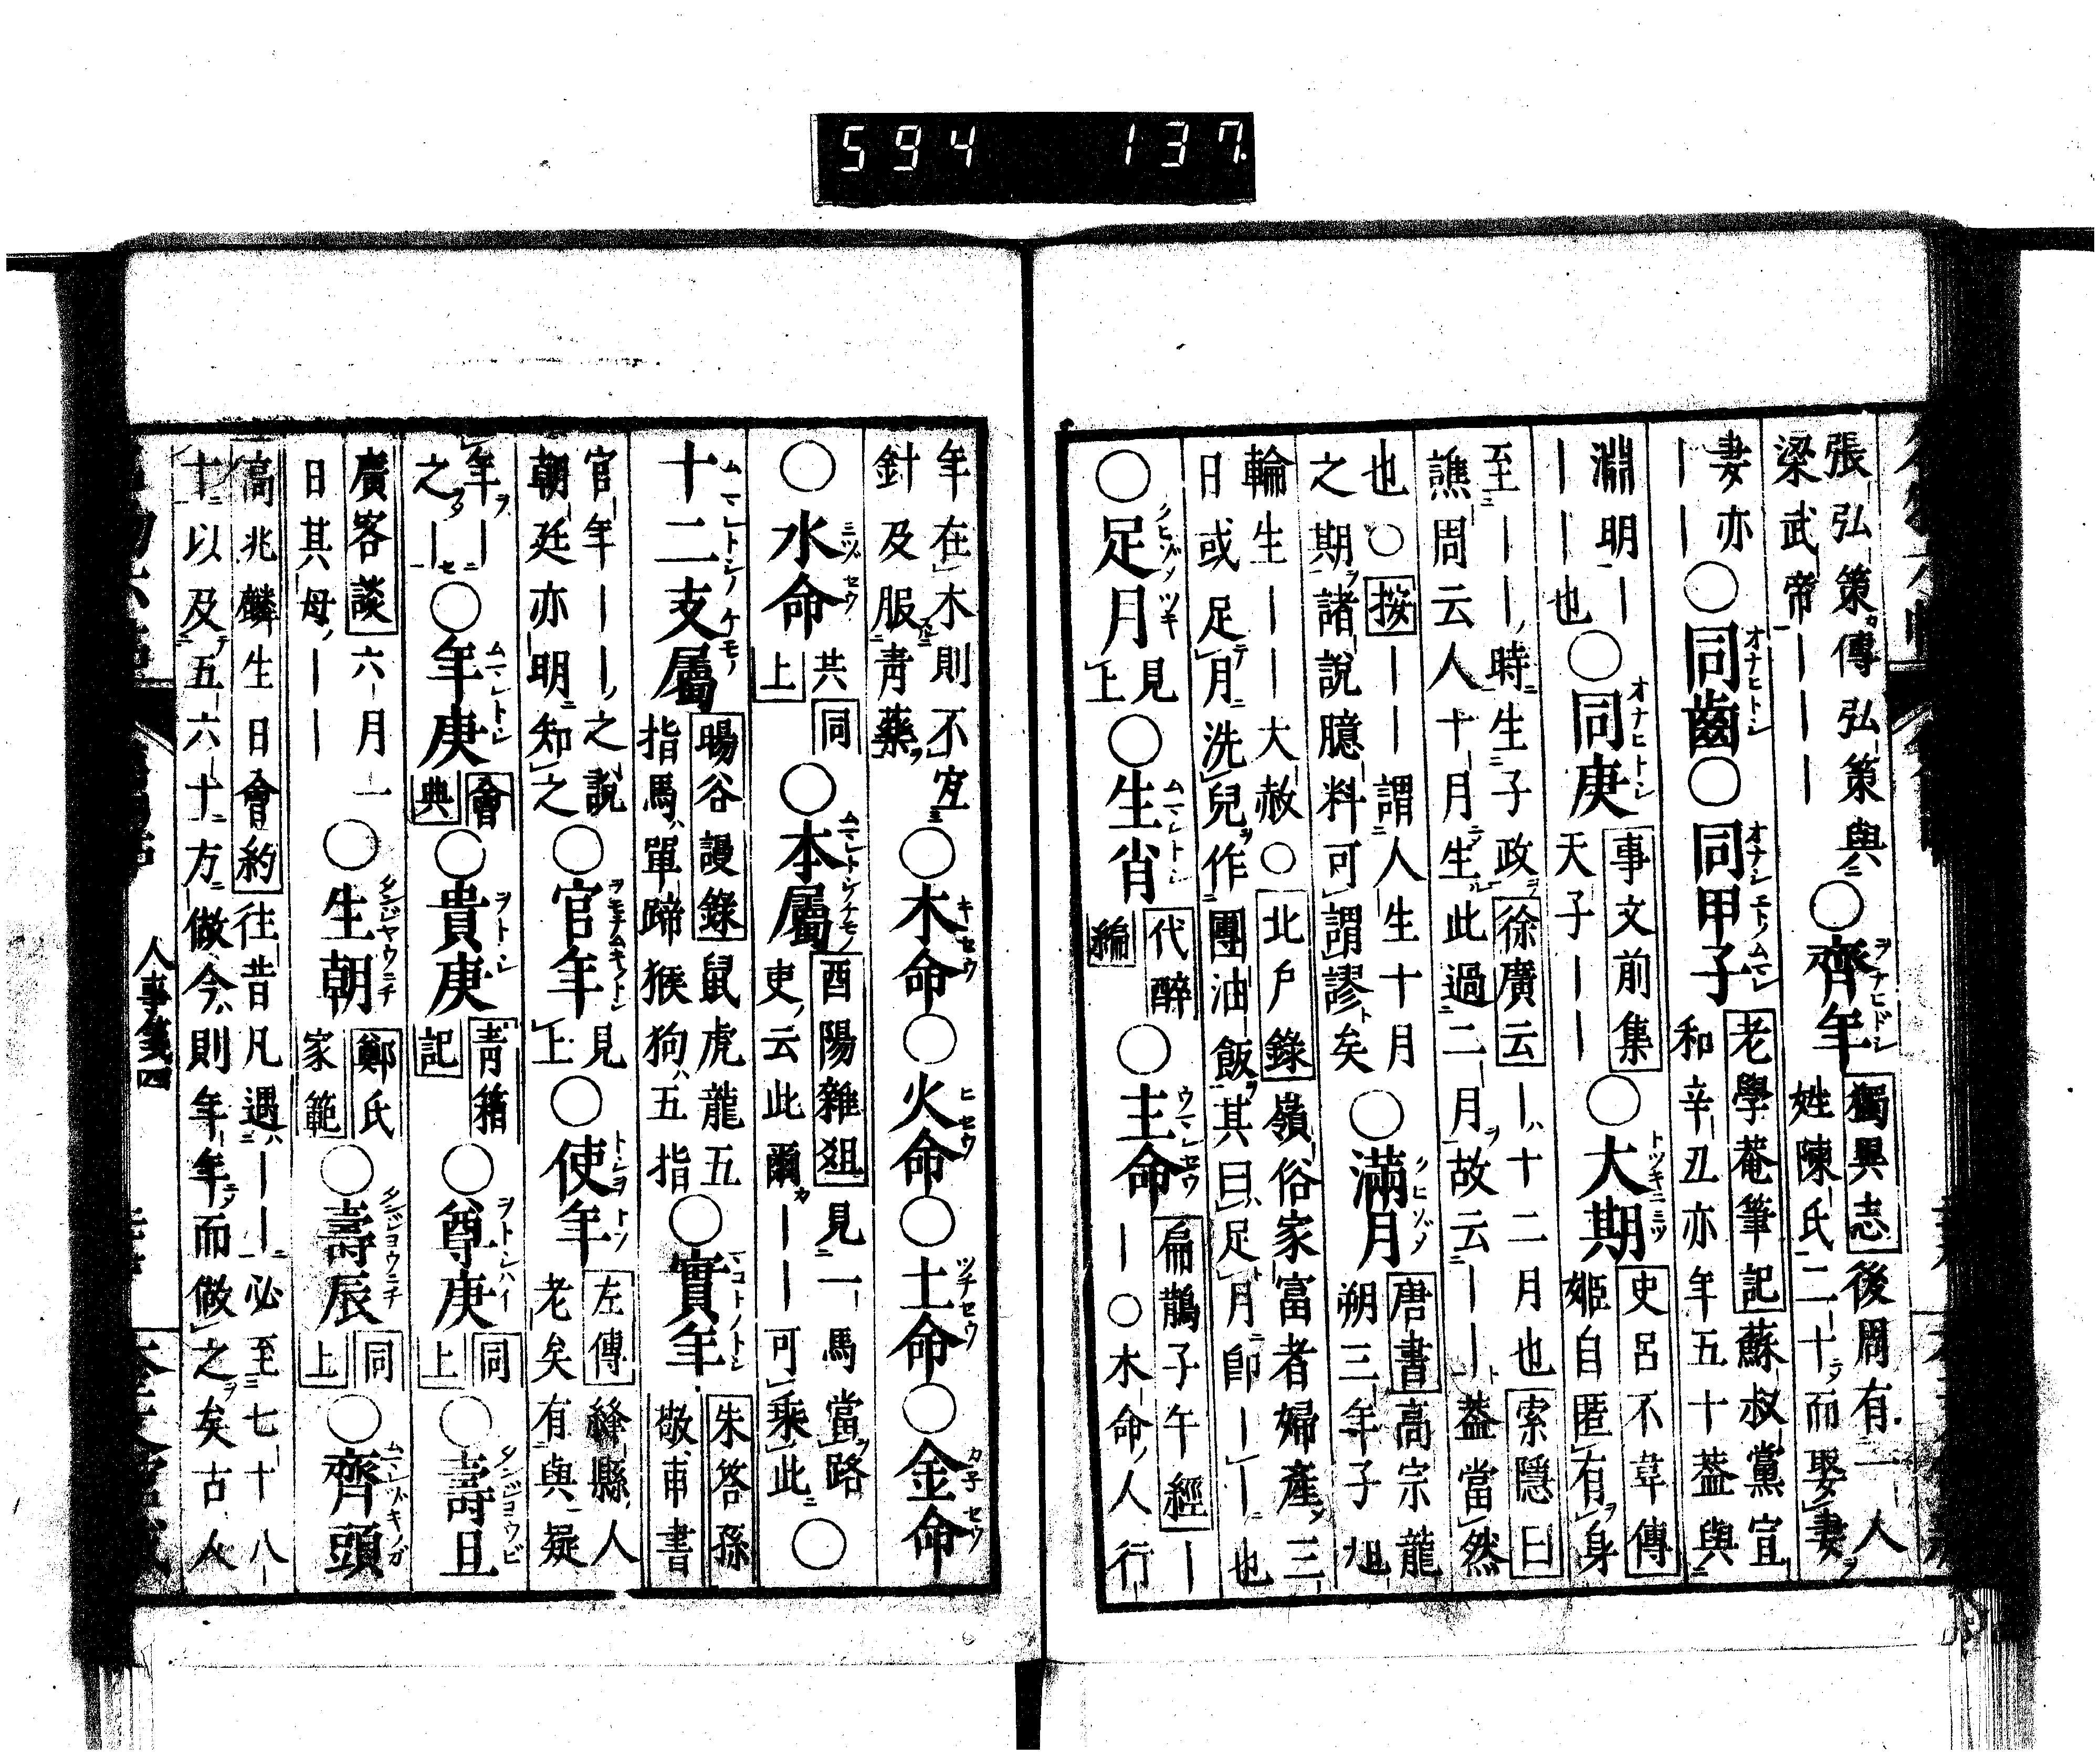 594 137
張弘策傳弘策與
梁武帝｜｜｜
○齊年
獨異志後周有一人
姓陳氏二十而娶妻
妻亦
｜｜
○同齒○同甲子
老學菴筆記蘇叔黨宣
和辛丑亦年五十葢與
淵明｜
｜｜也
○同庚
事文前集
天子｜｜
○大期
史呂不韋傳
姬自匿有身
至｜｜｜時生子政徐廣云｜十二月也索隱曰
譙周云人十月生此過二月故云｜｜葢當然
也○按｜｜謂人生十月
之期諸說臆料可謂謬矣
○滿月
唐書高宗龍
朔三年子旭
輪生｜｜大赦○北戶錄嶺俗家富者婦產三
日或足月洗兒作團油飯其曰足月卽｜｜也
○足月
見
上
○生肖
代醉
編
○主命
扁鵲子午經｜
｜○木命人行
年在木則不宜
針及服青藥
○木命○火命○土命○金命
○水命
共同
上
○本屬
酉陽雜俎見一馬當路
吏云此爾｜｜可乘此
○
十二支屬
暘谷謾錄鼠虎龍五
指馬單蹄猴狗五指
○實年
朱答孫
敬甫書
官年｜｜之說
朝廷亦明知之
○官年
見
上
○使年
左傳絳縣人
老矣有與疑
年｜
之｜
○年庚
會
典
○貴庚
青箱
記
○尊庚
同
上
○壽旦
廣客談六月一
日其母｜｜
○生朝
鄭氏
家範
○壽辰
同
上
○齊頭
高兆麟生日會約往昔凡遇｜｜必至七十八
十以及五六十方做今則年年而做之矣古人
人事箋四